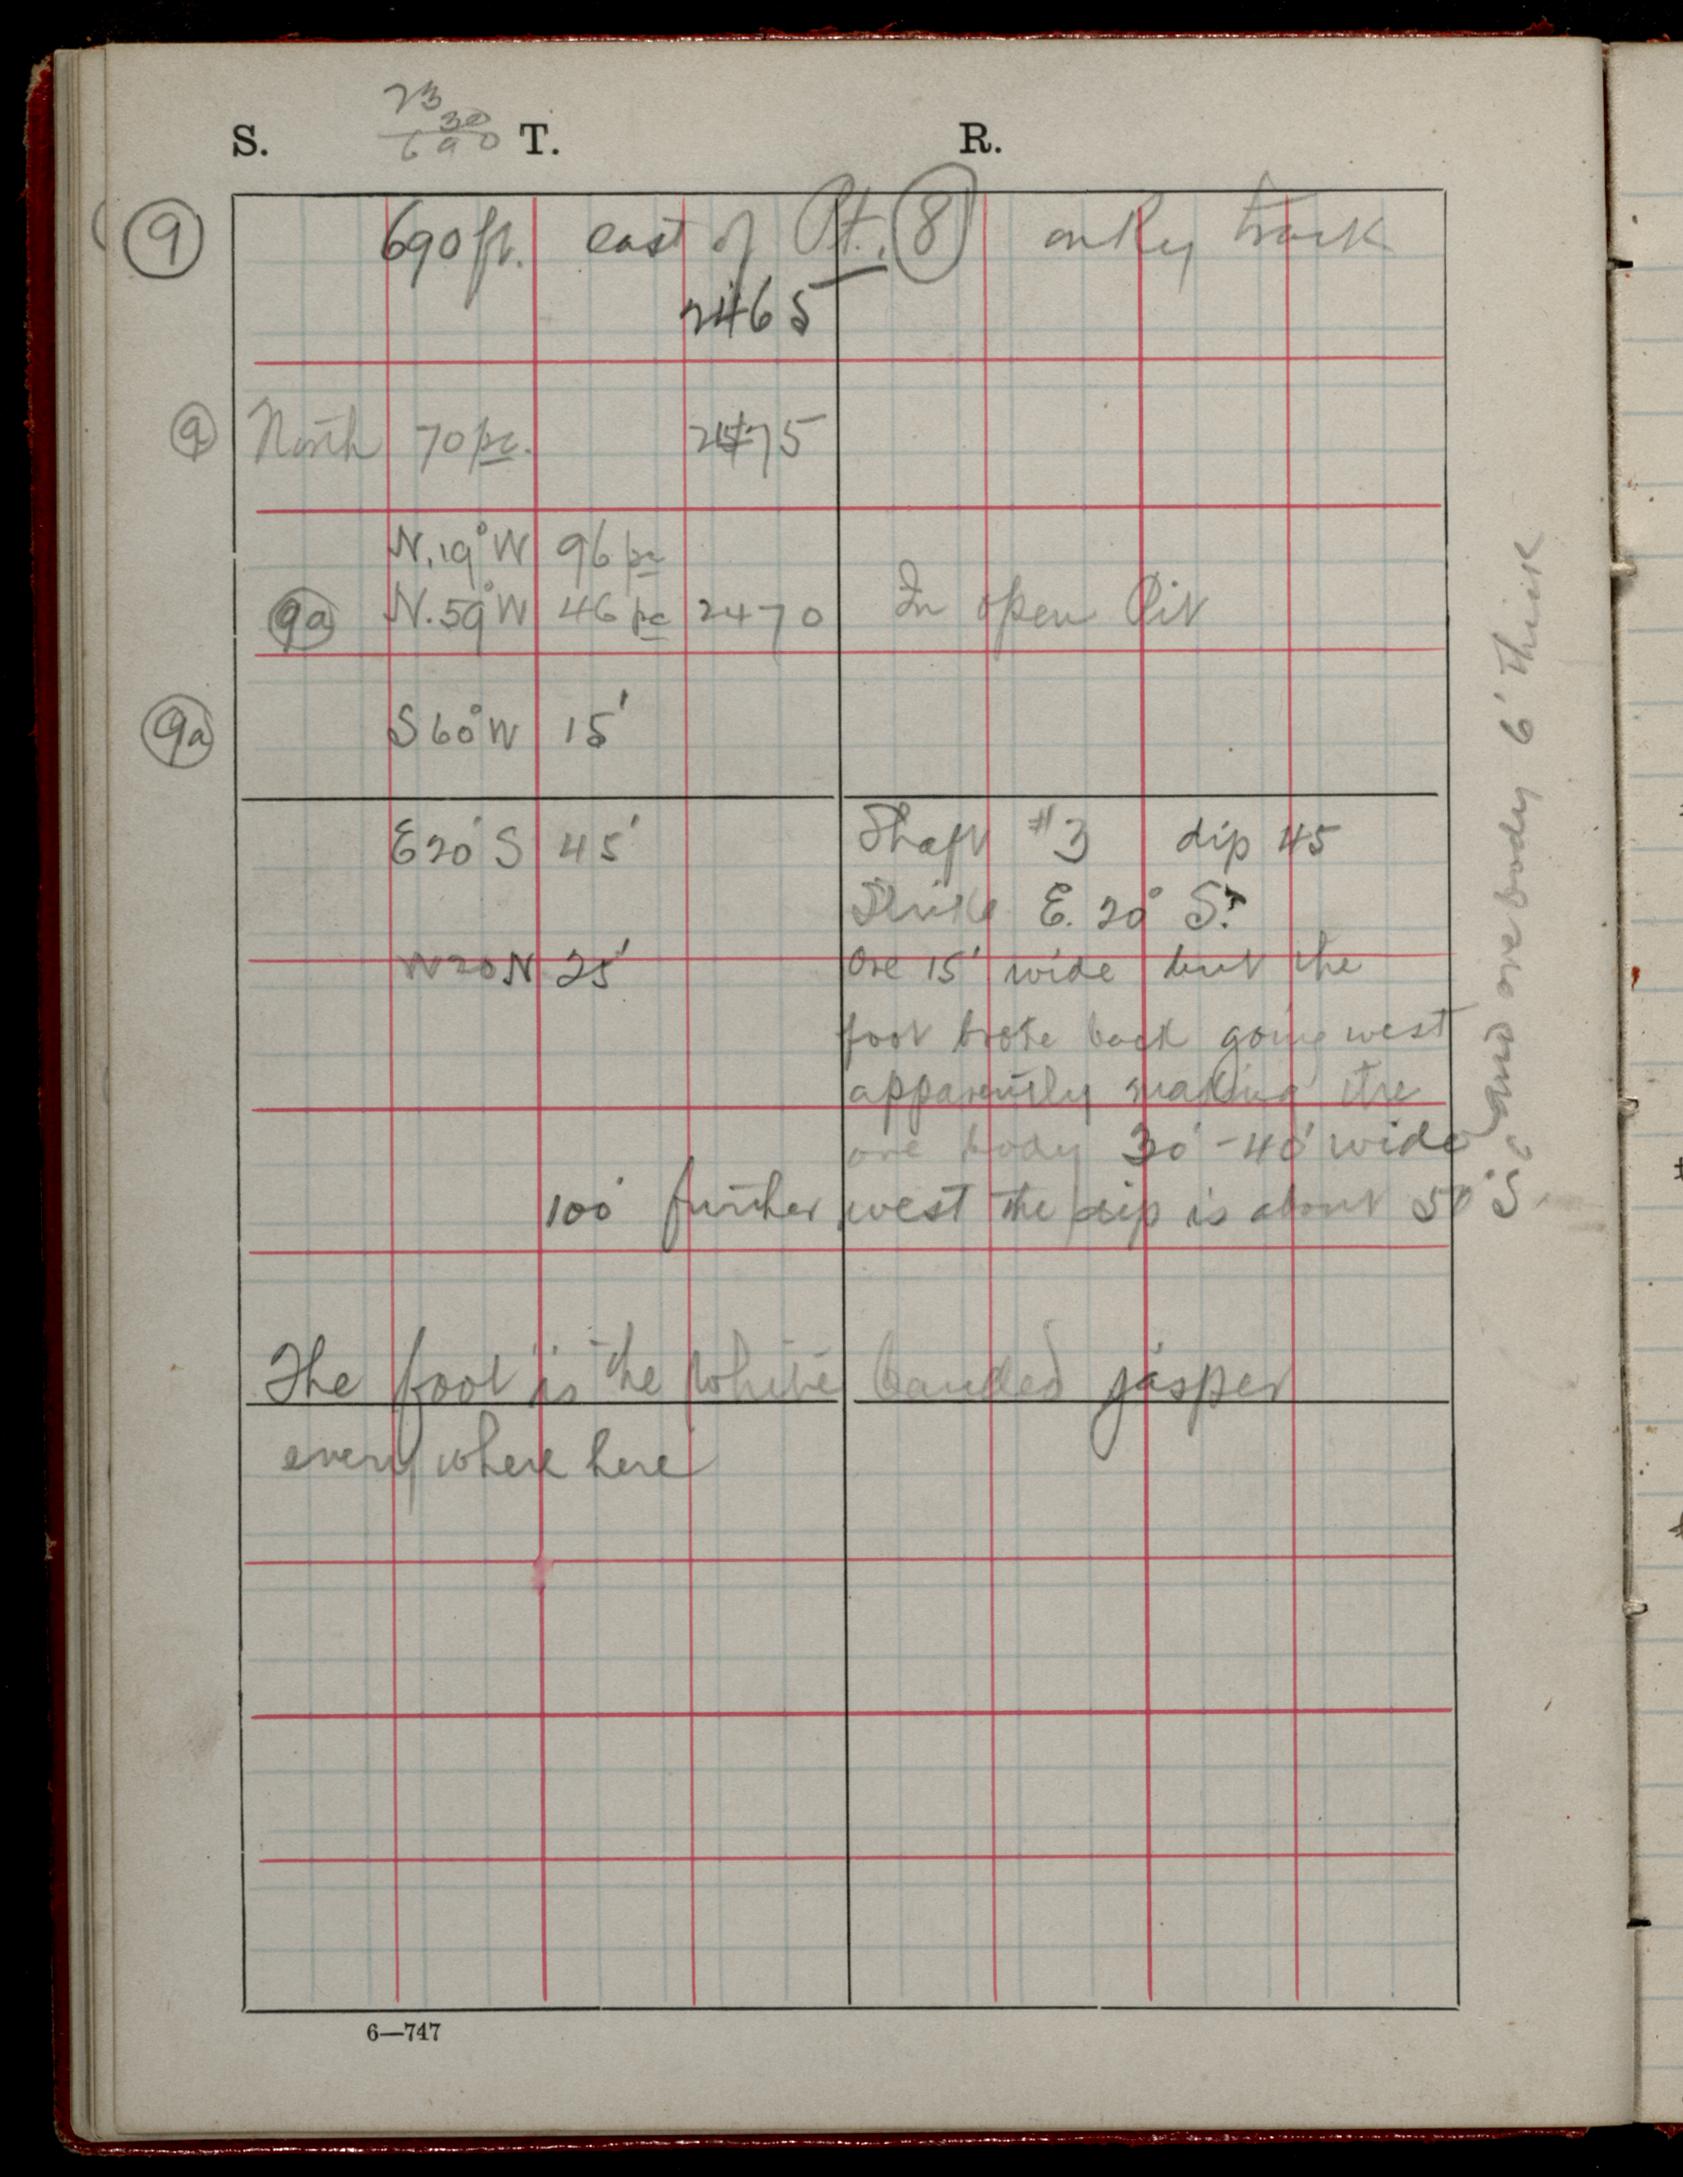 23
30
690
S. T. R.
⑨ 690 ft. east of Pt. ⑧ on Ry track
2465
⑨ North 70 pc. 2475
N. 19° W 96 pc
9a N. 59° W 46 pc 2470 In open Pit
9a S 60° W 15'
E 20° S 45' Shaft #3 dip 45
Strike E. 20° S.
W 20 N 25' Ore 15' wide but the
foot broke back going west
apparently making the
ore body 30' - 40' wide
100' further west the dip is about 50° S. and ore body 6' thick
The foot is the white banded jasper
every where here
6—747